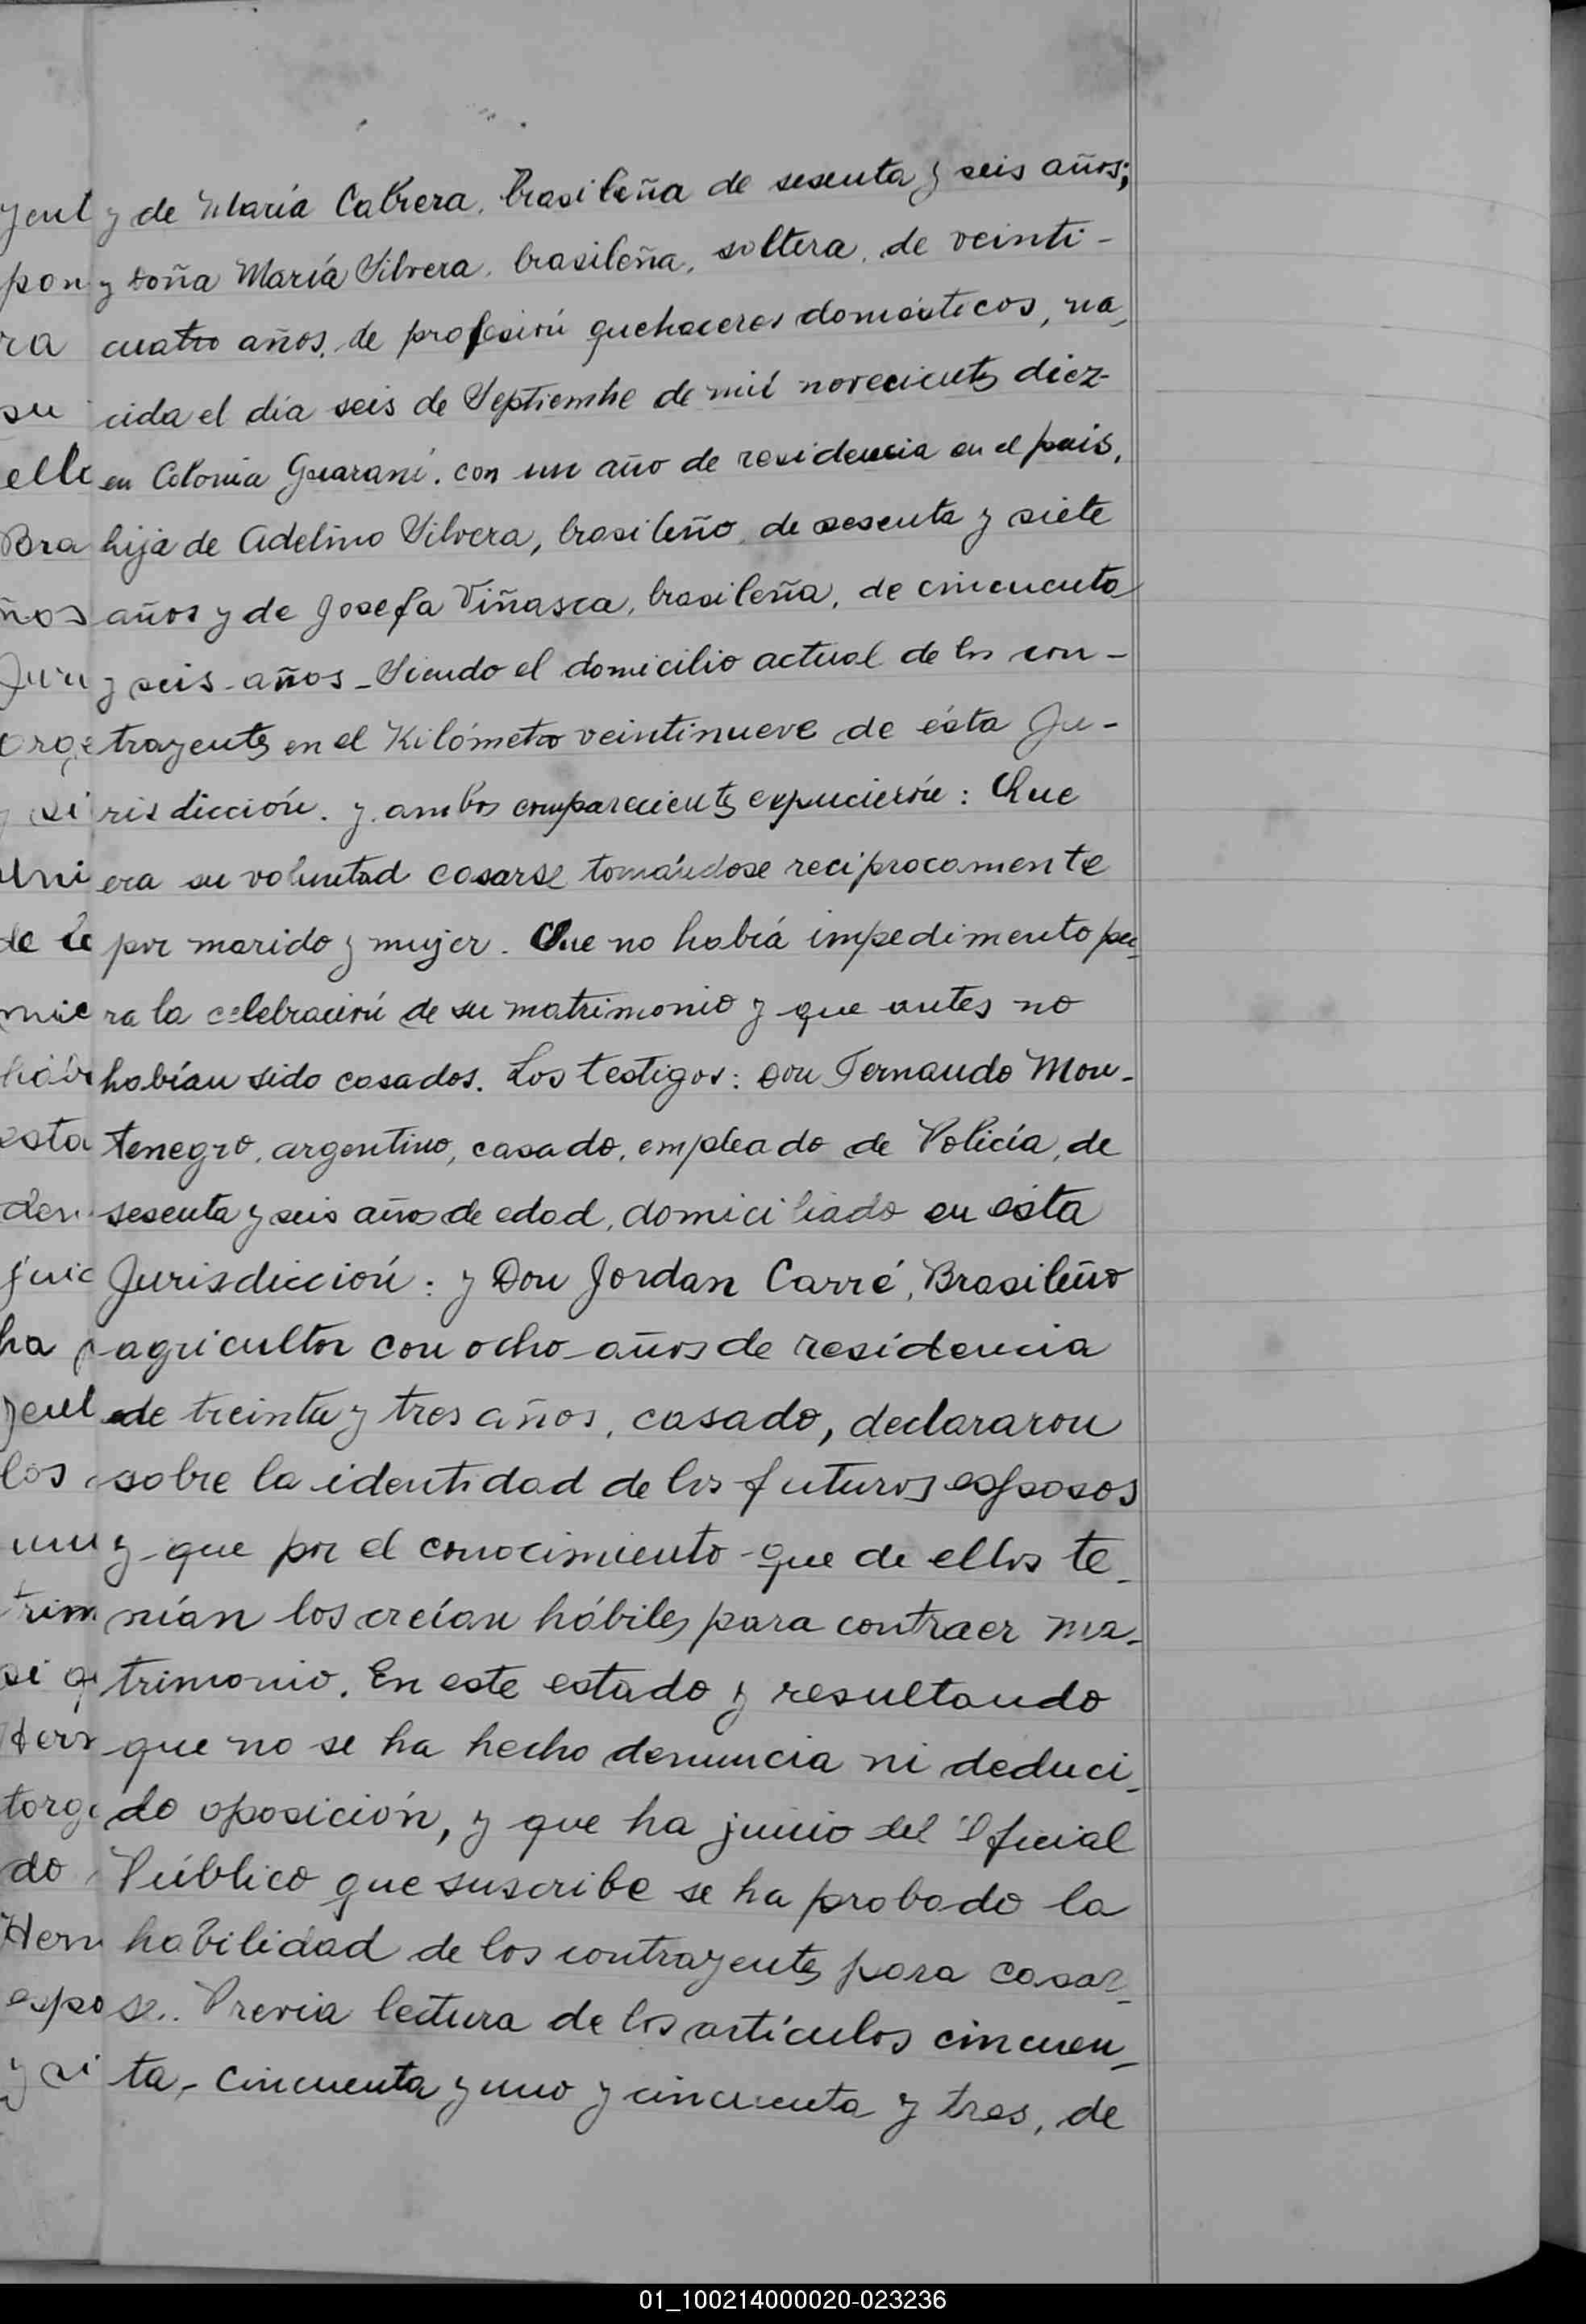 y de María Cabrera, brasileña de sesenta y seis años;
y Doña María Silvera, brasileña, soltera, de veinti-
cuatro años, de profesión quehaceres domésticos, na-
cida el día seis de Septiembre de mil novecientos diez
en Colonia Guaraní, con un año de residencia en el pais,
hija de Adelino Silvera, brasileño, de sesenta y siete
años y de Josefa Viñasca, brasileña, de cincuenta
y seis años - Siendo el domicilio actual de los con-
trayentes en el Kilómetro veintinueve de ésta Ju-
risdicción. y ambos comparecientes expucierón: Que
era su voluntad casarse tomándose reciprocamente
por marido y mujer. Que no habiá impedimento pa-
ra la celebración de su matrimonio y que antes no
habían sido casados. Los testigos: Don Fernando Mon-
tenegro, argentino, casado, empleado de Policía, de
sesenta y seis años de edad, domiciliado en esta
Jurisdicción: y Don Jordan Carré, Brasileño
agricultor con ocho años de residencia
de treinta y tres años, casado, declararon
sobre la identidad de los futuros esposos
y que por el conocimiento que de ellos te-
nían los creían hábiles para contraer ma-
trimonio. En este estado y resultando
que no se ha hecho denuncia ni deduci-
do oposición, y que ha juicio del Oficial
Público que suscribe se ha probado la
habilidad de los contrayentes para casar-
se. Previa lectura de los artículos cincuen-
ta, cincuenta y uno y cincuenta y tres, de
01_100214000020-023236